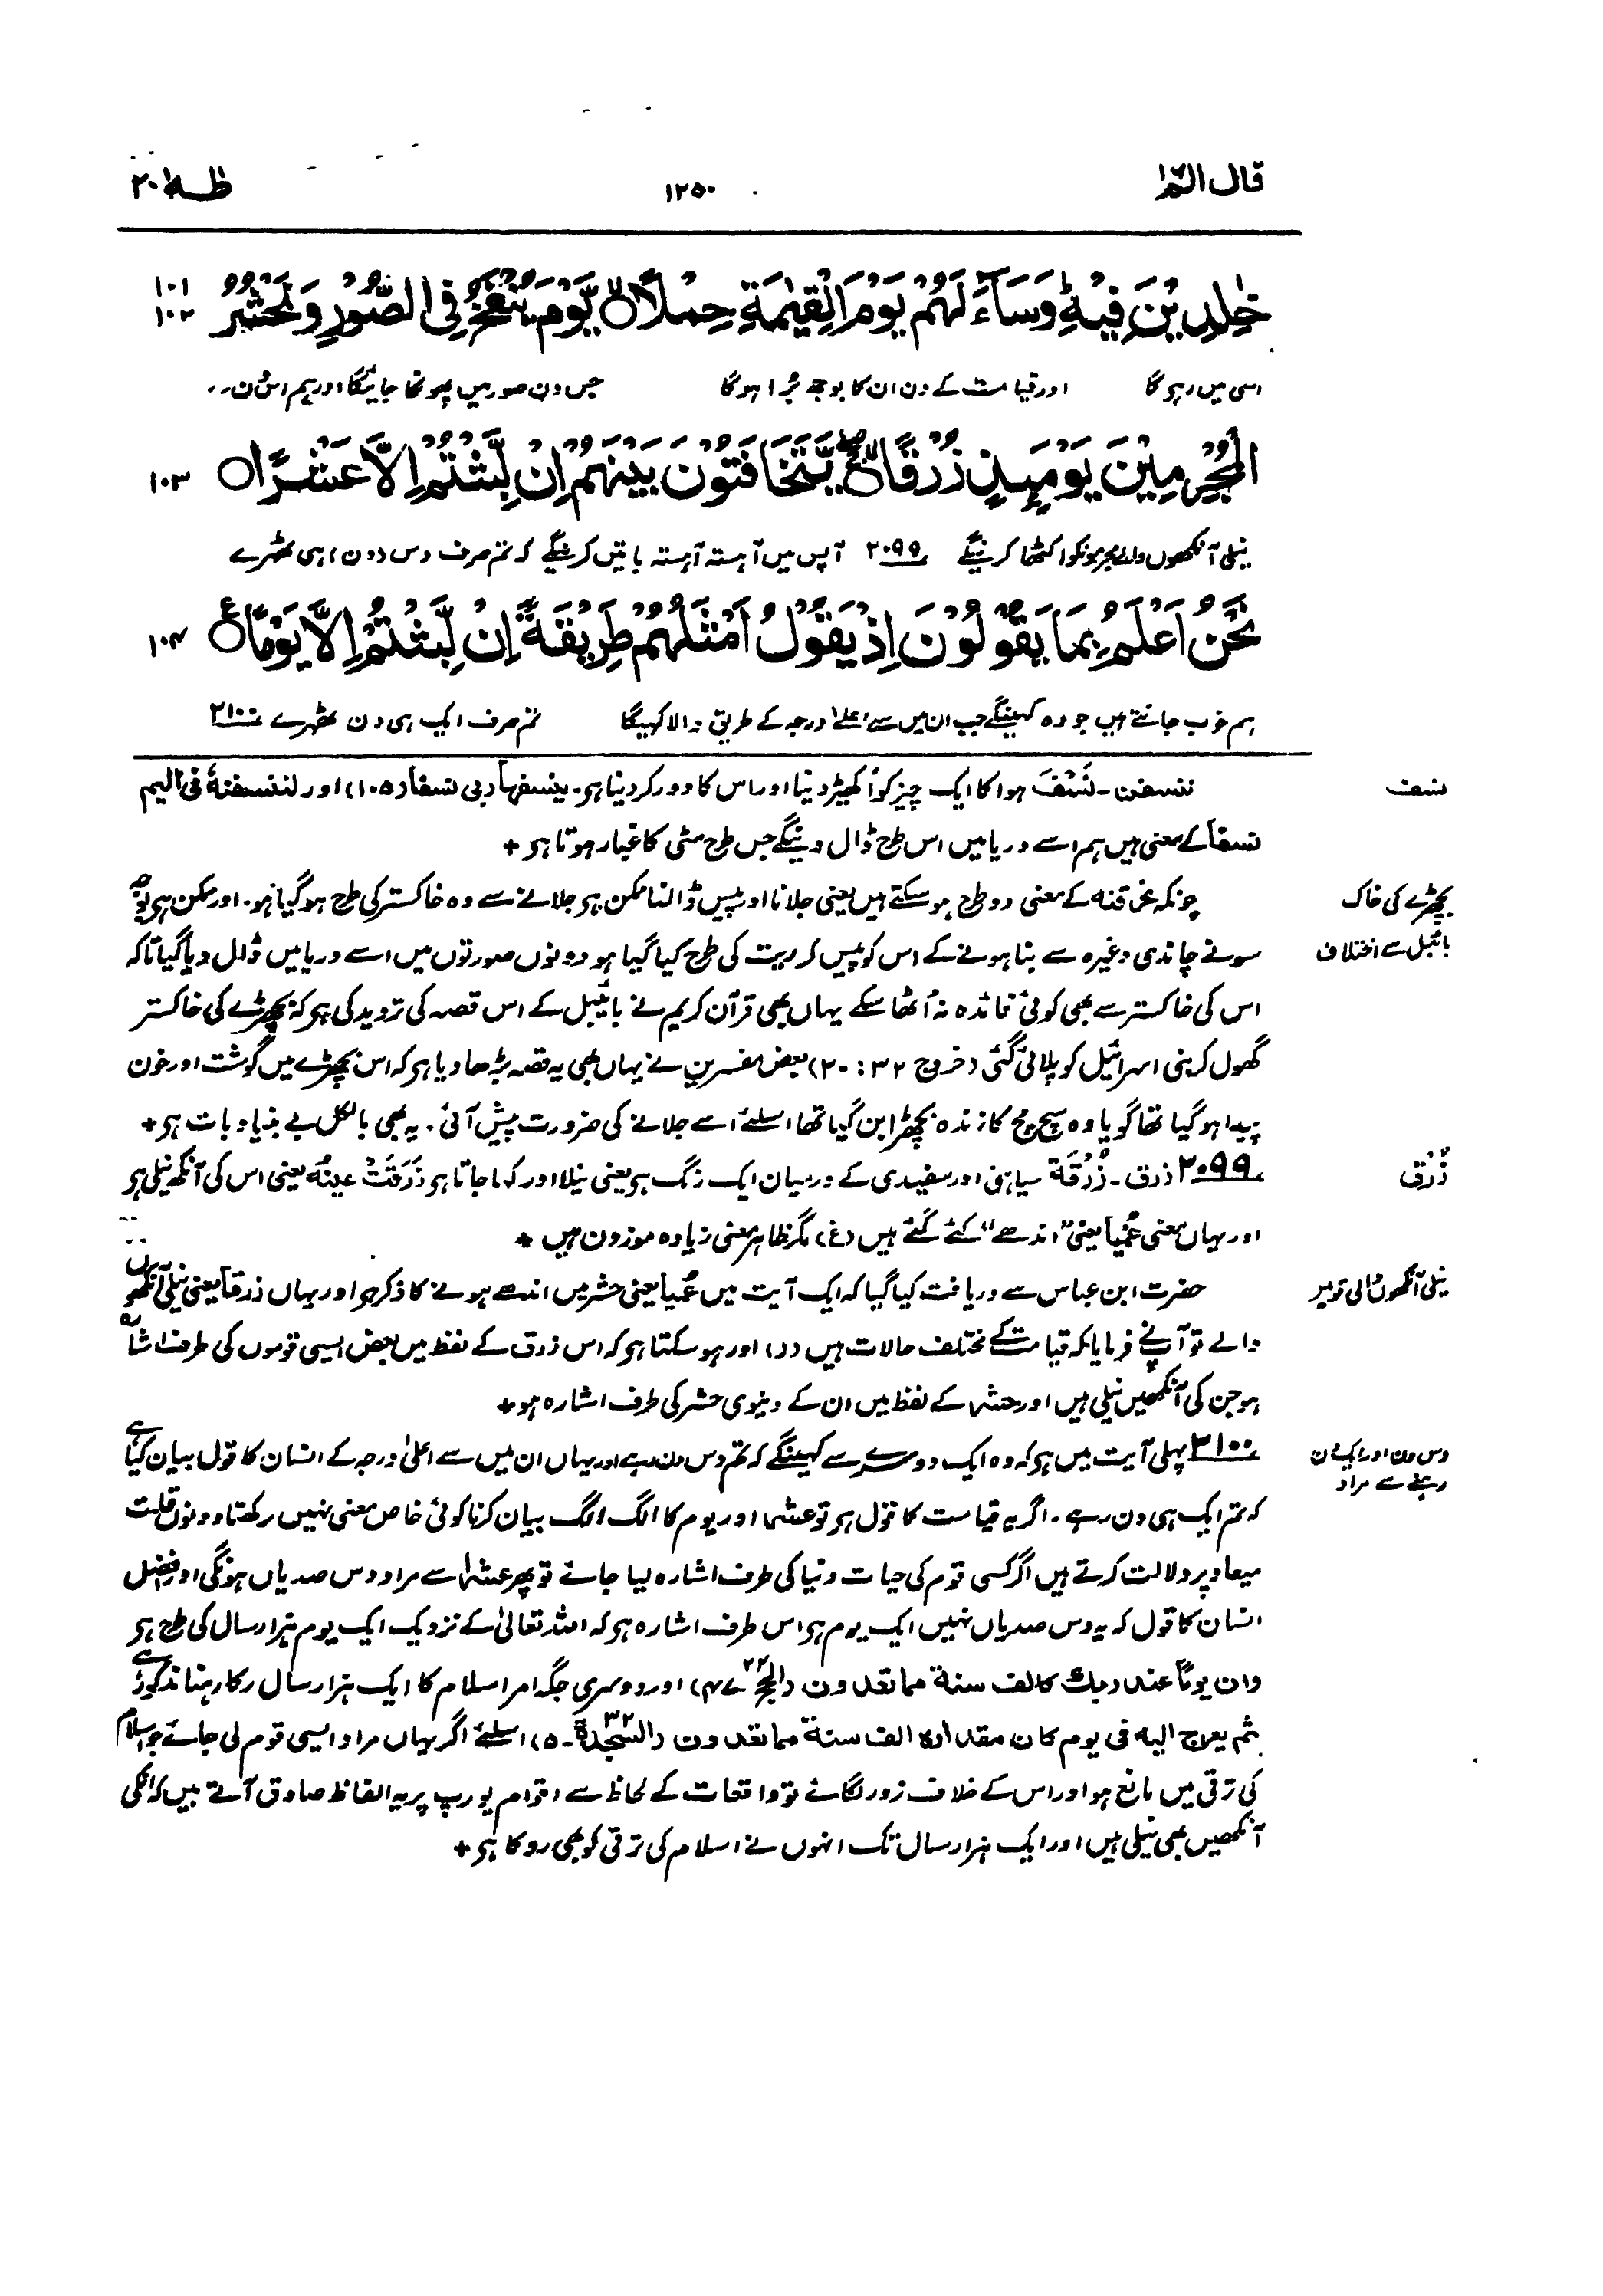 قال الم ١٦
١٢٥٠
طٰهٰ ٢٠
خٰلِدِيْنَ فِيْهِ ؕ وَسَآءَ لَهُمْ يَوْمَ الْقِيٰمَةِ حِمْلًا ۙ يَّوْمَ يُنْفَخُ فِى الصُّوْرِ وَنَحْشُرُ ١٠١ ١٠٢
اسی میں رہیگا اور قیامت کے دن ان کا بوجھ بُرا ہوگا جس دن صور میں پھونکا جائیگا اور ہم اس دن
الْمُجْرِمِيْنَ يَوْمَىِٕذٍ زُرْقًا ۚۖ يَّتَخَافَتُوْنَ بَيْنَهُمْ اِنْ لَّبِثْتُمْ اِلَّا عَشْرًا ○ ١٠٣
نیلی آنکھوں والے مجرمونکو اکٹھا کرینگے ٢٠٩٩ آپس میں آہستہ آہستہ باتیں کرینگے کہ تم صرف دس (دن) ہی ٹھہرے
نَحْنُ اَعْلَمُ بِمَا يَقُوْلُوْنَ اِذْ يَقُوْلُ اَمْثَلُهُمْ طَرِيْقَةً اِنْ لَّبِثْتُمْ اِلَّا يَوْمًا ○ع ١٠٤
ہم خوب جانتے ہیں جو وہ کہینگے جب ان میں سے اعلےٰ درجہ کے طریق والا کہیگا تم صرف ایک ہی دن ٹھہرے ٢١٠٠
نسف
ننسفن۔ نَسْفَ ہوا کا ایک چیز کو اُکھیڑ دینا اور اس کا دور کر دینا ہو۔ ینسفھا ربی نسفا (١٠٥) اور لننسفنہٗ فی الیم
نسفاً کے معنی ہیں ہم اسے دریا میں اس طرح ڈال دینگے جس طرح مٹی کا غبار ہوتا ہو +
بچھڑے کی خاک
بائبل سے اختلاف
چونکہ حرقنہ کے معنی دو طرح ہو سکتے ہیں یعنی جلانا اور پیس ڈالنا ممکن ہو جلانے سے وہ خاکستر کی طرح ہو گیا ہو۔ اور ممکن ہو بوجہ
سونے چاندی وغیرہ سے بنا ہونے کے اس کو پیس کر ریت کی طرح کیا گیا ہو دونوں صورتوں میں اسے دریا میں ڈال دیا گیا تاکہ
اس کی خاکستر سے بھی کوئی فائدہ نہ اُٹھا سکے یہاں بھی قرآن کریم نے بائیبل کے اس قصہ کی تردید کی ہو کہ بچھڑے کی خاکستر
گھول کر بنی اسرائیل کو پلائی گئی (خروج ٣٢ : ٢٠) بعض مفسرین نے یہاں بھی یہ قصہ بڑھا دیا ہو کہ اس بچھڑے میں گوشت اور خون
پیدا ہو گیا تھا گویا وہ سچ مچ کا زندہ بچھڑا بن گیا تھا اسلئے اسے جلانے کی ضرورت پیش آئی۔ یہ بھی بالکل بے بنیاد بات ہو +
زُرْق
٢٠٩٩ زرق۔ زُرْقَة سیاہی اور سفیدی کے درمیان ایک رنگ ہو یعنی نیلا اور کہا جاتا ہو زَرَقَتْ عینہٗ یعنی اس کی آنکھ نیلی ہو
اور یہاں معنی عُمْیاً یعنی "اندھے" کئے گئے ہیں (غ) مگر ظاہر معنی زیادہ موزون ہیں +
نیلی آنکھوں والی قومیں
حضرت ابن عباس سے دریافت کیا گیا کہ ایک آیت میں عُمیاً یعنی حشر میں اندھے ہونے کا ذکر ہو اور یہاں زرقاً یعنی نیلی آنکھوں
والے تو آپنے فرمایا کہ قیامت کے مختلف حالات ہیں (ر) اور ہو سکتا ہو کہ اس زرق کے لفظ میں بعض ایسی قوموں کی طرف اشارہ
ہو جن کی آنکھیں نیلی ہیں اور حشر کے لفظ میں ان کے دنیوی حشر کی طرف اشارہ ہو +
دس دن اور ایک دن
رہنے سے مراد
٢١٠٠ پہلی آیت میں ہو کہ وہ ایک دوسرے سے کہینگے کہ تم دس دن رہے اور یہاں ان میں سے اعلیٰ درجہ کے انسان کا قول بیان کیا ہے
کہ تم ایک ہی دن رہے۔ اگر یہ قیامت کا قول ہو تو عشرا اور یوم کا الگ الگ بیان کرنا کوئی خاص معنی نہیں رکھتا دونوں قلت
میعاد پر دلالت کرتے ہیں اگر کسی قوم کی حیات دنیا کی طرف اشارہ لیا جائے تو پھر عشرا سے مراد دس صدیاں ہونگی اور افضل
انسان کا قول کہ یہ دس صدیاں نہیں ایک یوم ہو اس طرف اشارہ ہو کہ اللہ تعالیٰ کے نزدیک ایک یوم ہزار سال کی طرح ہو
وان یوماً عند ربك كالف سنة مما تعدون (الحج ٢٢۔ ٤٧) اور دوسری جگہ امر اسلام کا ایک ہزار سال رکا رہنا مذکور ہے
ثم یعرج الیه فی یوم كان مقداره الف سنة مما تعدون (السجدة ٣٢۔ ٥) اسلئے اگر یہاں مراد ایسی قوم لی جائے جو اسلام
کی ترقی میں مانع ہو اور اس کے خلاف زور لگائے تو واقعات کے لحاظ سے اقوام یورپ پر یہ الفاظ صادق آتے ہیں کہ انکی
آنکھیں بھی نیلی ہیں اور ایک ہزار سال تک انہوں نے اسلام کی ترقی کو بھی روکا ہو +